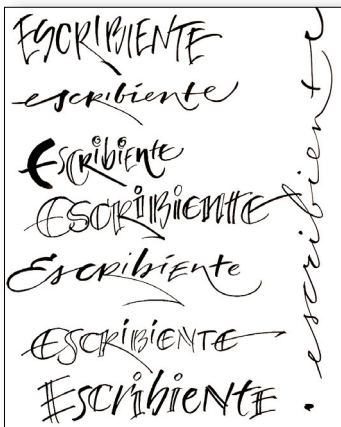 ESCRIBIENTE
escribiente
Escribiente
ESCRIBIENTE
Escribiente
ESCRIBIENTE
EscribieNtE
escribiente